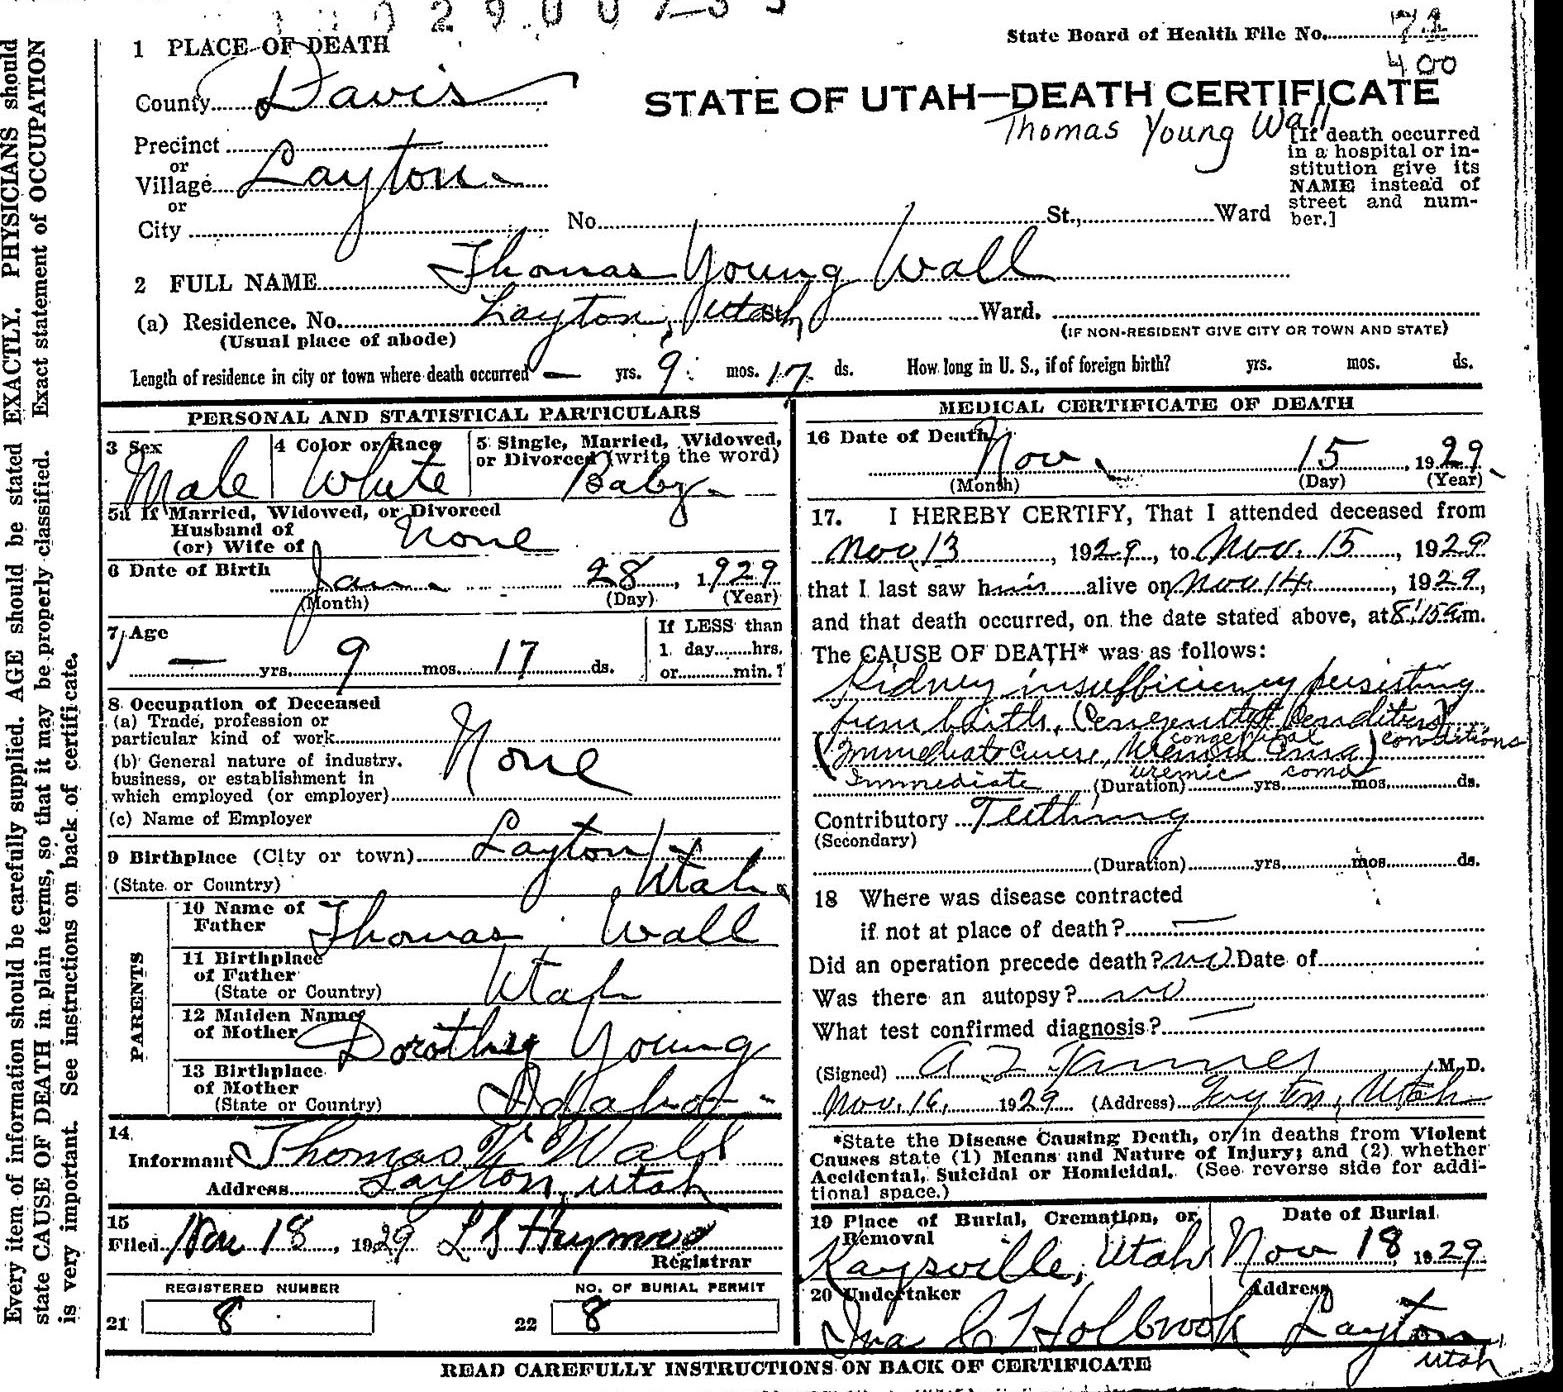 State Board of Health File No. 71
400
1 PLACE OF DEATH
County Davis
STATE OF UTAH—DEATH CERTIFICATE
Thomas Young Wall
Precinct
or
Village Layton
or
City
No. St., Ward
[If death occurred
in a hospital or in-
stitution give its
NAME instead of
street and num-
ber.]
2 FULL NAME Thomas Young Wall
(a) Residence. No. Layton, Utah St. Ward.
(Usual place of abode)
(IF NON-RESIDENT GIVE CITY OR TOWN AND STATE)
Length of residence in city or town where death occurred — yrs. 9 mos. 17 ds. How long in U. S., if of foreign birth? yrs. mos. ds.
PERSONAL AND STATISTICAL PARTICULARS
3 Sex
Male
4 Color or Race
White
5 Single, Married, Widowed,
or Divorced (write the word)
Baby
5a If Married, Widowed, or Divorced
Husband of
(or) Wife of None
6 Date of Birth Jan. 28, 1929
(Month) (Day) (Year)
7 Age
— yrs. 9 mos. 17 ds.
If LESS than
1 day hrs.
or min.?
8 Occupation of Deceased
(a) Trade, profession or
particular kind of work
(b) General nature of industry.
business, or establishment in
which employed (or employer)
None
(c) Name of Employer
9 Birthplace (City or town) Layton
(State or Country) Utah
PARENTS
10 Name of
Father Thomas Wall
11 Birthplace
of Father
(State or Country) Utah
12 Maiden Name
of Mother Dorothy Young
13 Birthplace
of Mother
(State or Country) Idaho
14
Informant Thomas Y. Wall
Address Layton, Utah
15
Filed Nov 18, 1929
Registrar
REGISTERED NUMBER
21 8
NO. OF BURIAL PERMIT
22 8
MEDICAL CERTIFICATE OF DEATH
16 Date of Death Nov. 15, 1929.
(Month) (Day) (Year)
17. I HEREBY CERTIFY, That I attended deceased from
Nov 13, 1929, to Nov. 15, 1929
that I last saw him alive on Nov 14, 1929,
and that death occurred, on the date stated above, at 8:15 a.m.
The CAUSE OF DEATH* was as follows:
Kidney insufficiency persisting
from birth, (congenital conditions)
(Immediate cause, Uremic Coma)
congenital conditions
Immediate uremic coma
(Duration) yrs. mos. ds.
Contributory Teething
(Secondary)
(Duration) yrs. mos. ds.
18 Where was disease contracted
if not at place of death? —
Did an operation precede death? no Date of
Was there an autopsy? no
What test confirmed diagnosis? —
(Signed) A Z Tanner, M. D.
Nov. 16, 1929 (Address) Layton, Utah
*State the Disease Causing Death, or in deaths from Violent
Causes state (1) Means and Nature of Injury; and (2) whether
Accidental, Suicidal or Homicidal. (See reverse side for addi-
tional space.)
19 Place of Burial, Cremation, or
Removal
Kaysville, Utah
Date of Burial
Nov 18, 1929
20 Undertaker
Ira C Holbrook
Address
Layton
Utah
READ CAREFULLY INSTRUCTIONS ON BACK OF CERTIFICATE
Every item of information should be carefully supplied. AGE should be stated EXACTLY. PHYSICIANS should
state CAUSE OF DEATH in plain terms, so that it may be properly classified. Exact statement of OCCUPATION
is very important. See instructions on back of certificate.